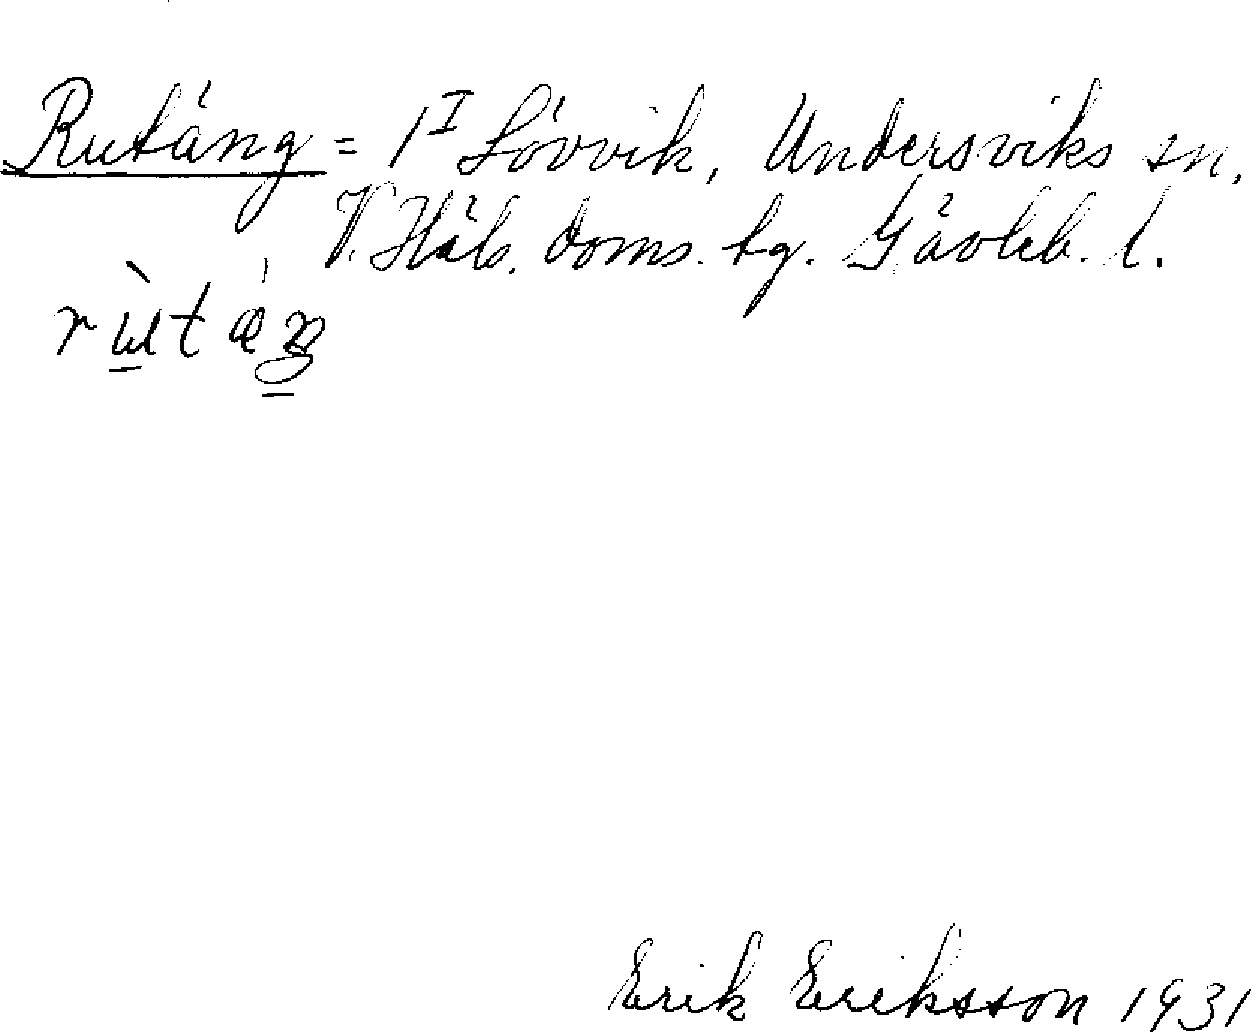 Rutäng = 1^I Lövvik, Undersviks sn.
V. Häls. doms. tg. Gävleb. l.
Erik Eriksson 1931